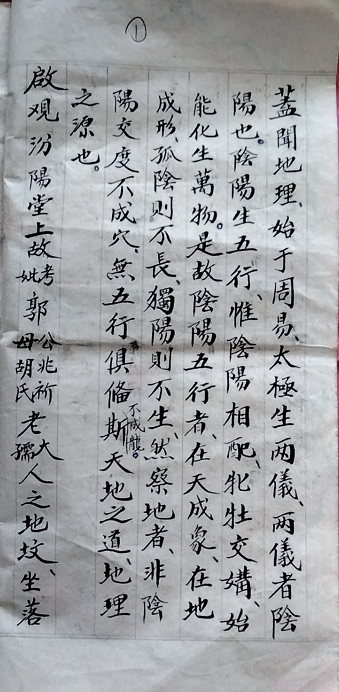 ①
蓋聞地理、始于周易、太極生两儀、两儀者陰
陽也。陰陽生五行、惟陰陽相配、牝牡交媾、始
能化生萬物。是故陰陽五行者、在天成象、在地
成形、孤陰則不長、獨陽則不生、然察地者、非陰
陽交度不成穴、無五行俱俻不成龍。斯天地之道、地理
之源也。
啟观汾陽堂上故考妣郭公兆祈母胡氏老大孺人之地坟、坐落